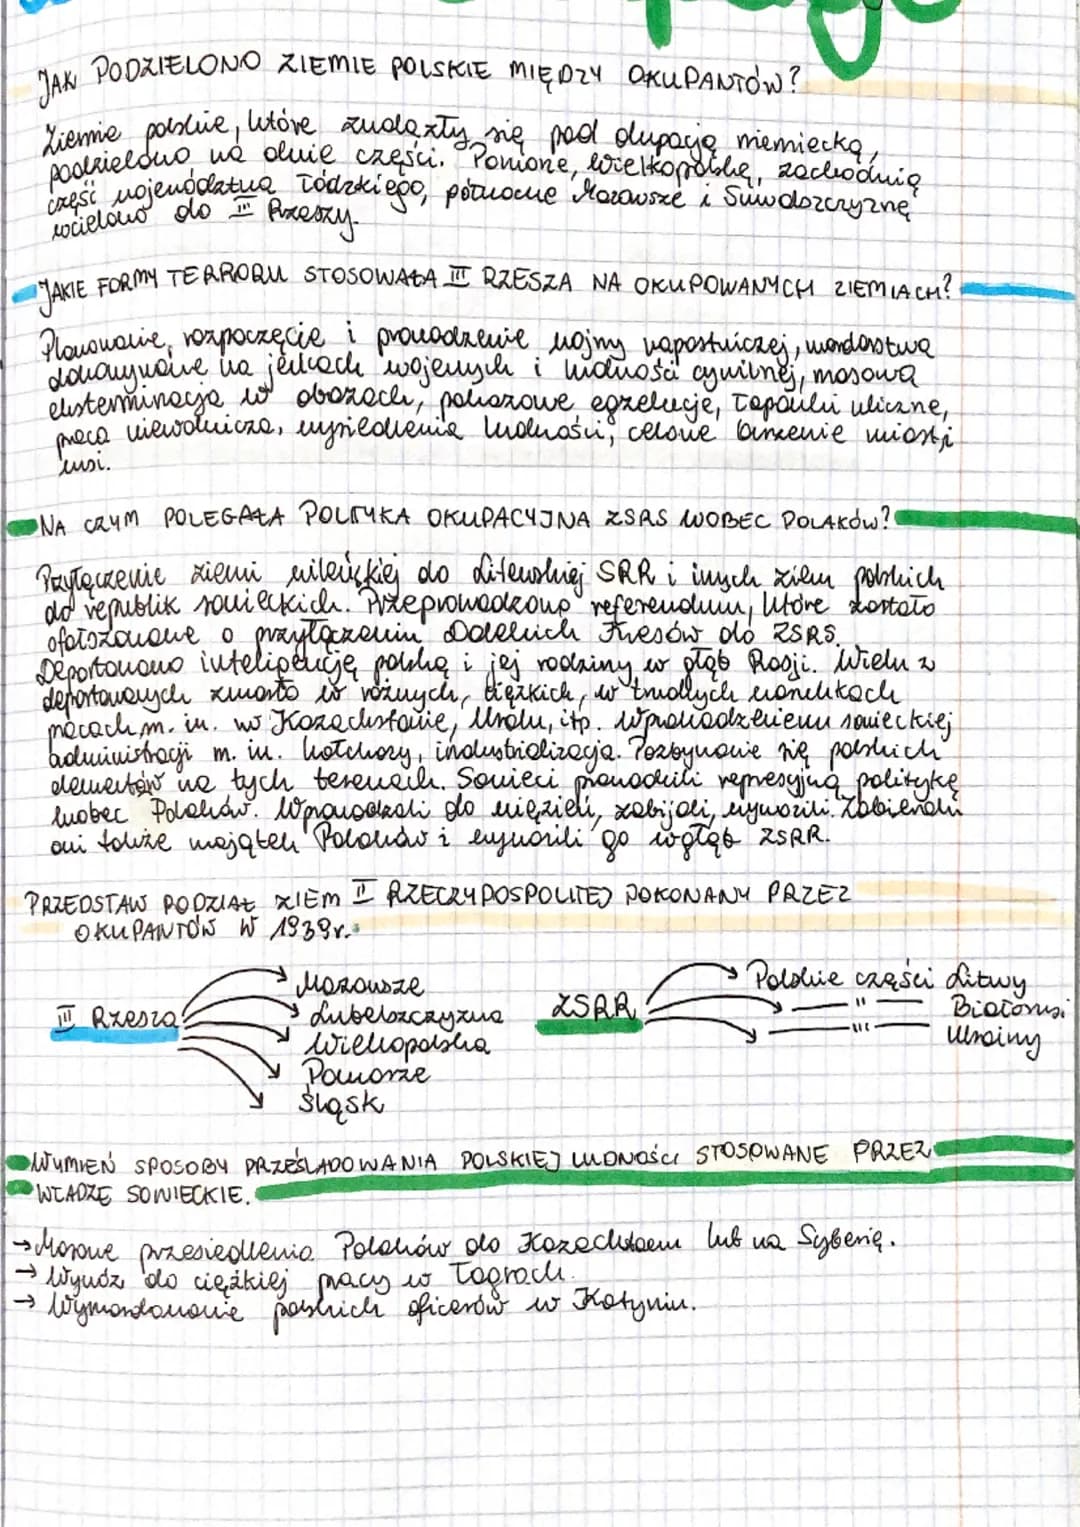 JAK PODZIELONO ZIEMIE POLSKIE MIĘDZY OKUPANTÓW?
Ziemie polskie, które znalazły się pod okupacją niemiecką,
podzielono na dwie części. Pomorze, Wielkopolskę, zachodnią
część województwa łódzkiego, północne Mazowsze i Suwalszczyznę
wcielono do III Rzeszy.
JAKIE FORMY TERRORU STOSOWAŁA III RZESZA NA OKUPOWANYCH ZIEMIACH?
Planowanie, rozpoczęcie i prowadzenie wojny napastniczej, morderstwa
dokonywane na jeńcach wojennych i ludności cywilnej, masowa
eksterminacja w obozach, pokazowe egzekucje, łapanki uliczne,
praca niewolnicza, wysiedlenia ludności, celowe burzenie miast i
wsi.
NA CZYM POLEGAŁA POLITYKA OKUPACYJNA ZSRS WOBEC POLAKÓW?
Przyłączenie ziemi wileńskiej do Litewskiej SRR i innych ziem polskich
do republik sowieckich. Przeprowadzono referendum, które zostało
sfałszowane o przyłączeniu Dalekich Kresów do ZSRS.
Deportowano inteligencję polską i jej rodziny w głąb Rosji. Wielu z
deportowanych zmarło w różnych, ciężkich, w trudnych warunkach
pracach m. in. w Kazachstanie, Uralu, itp. Wprowadzeniem sowieckiej
administracji m. in. kołchozy, industrializacja. Pozbywanie się polskich
elementów na tych terenach. Sowieci prowadzili represyjną politykę
wobec Polaków. Wprowadzali do więzień, zabijali, wywozili. Zabierali
oni także majątek Polaków i wywozili go wgłąb ZSRR.
PRZEDSTAW PODZIAŁ ZIEM II RZECZYPOSPOLITEJ DOKONANY PRZEZ
OKUPANTÓW W 1939r.
III Rzesza
Mazowsze
Lubelszczyzna
Wielkopolska
Pomorze
Śląsk
ZSRR
Polskie części Litwy
—"— Białorusi
—"— Ukrainy
WYMIEŃ SPOSOBY PRZEŚLADOWANIA POLSKIEJ LUDNOŚCI STOSOWANE PRZEZ
WŁADZE SOWIECKIE.
→ Masowe przesiedlenia Polaków do Kazachstanu lub na Syberię.
→ Wywóz do ciężkiej pracy w łagrach.
→ Wymordowanie polskich oficerów w Katyniu.